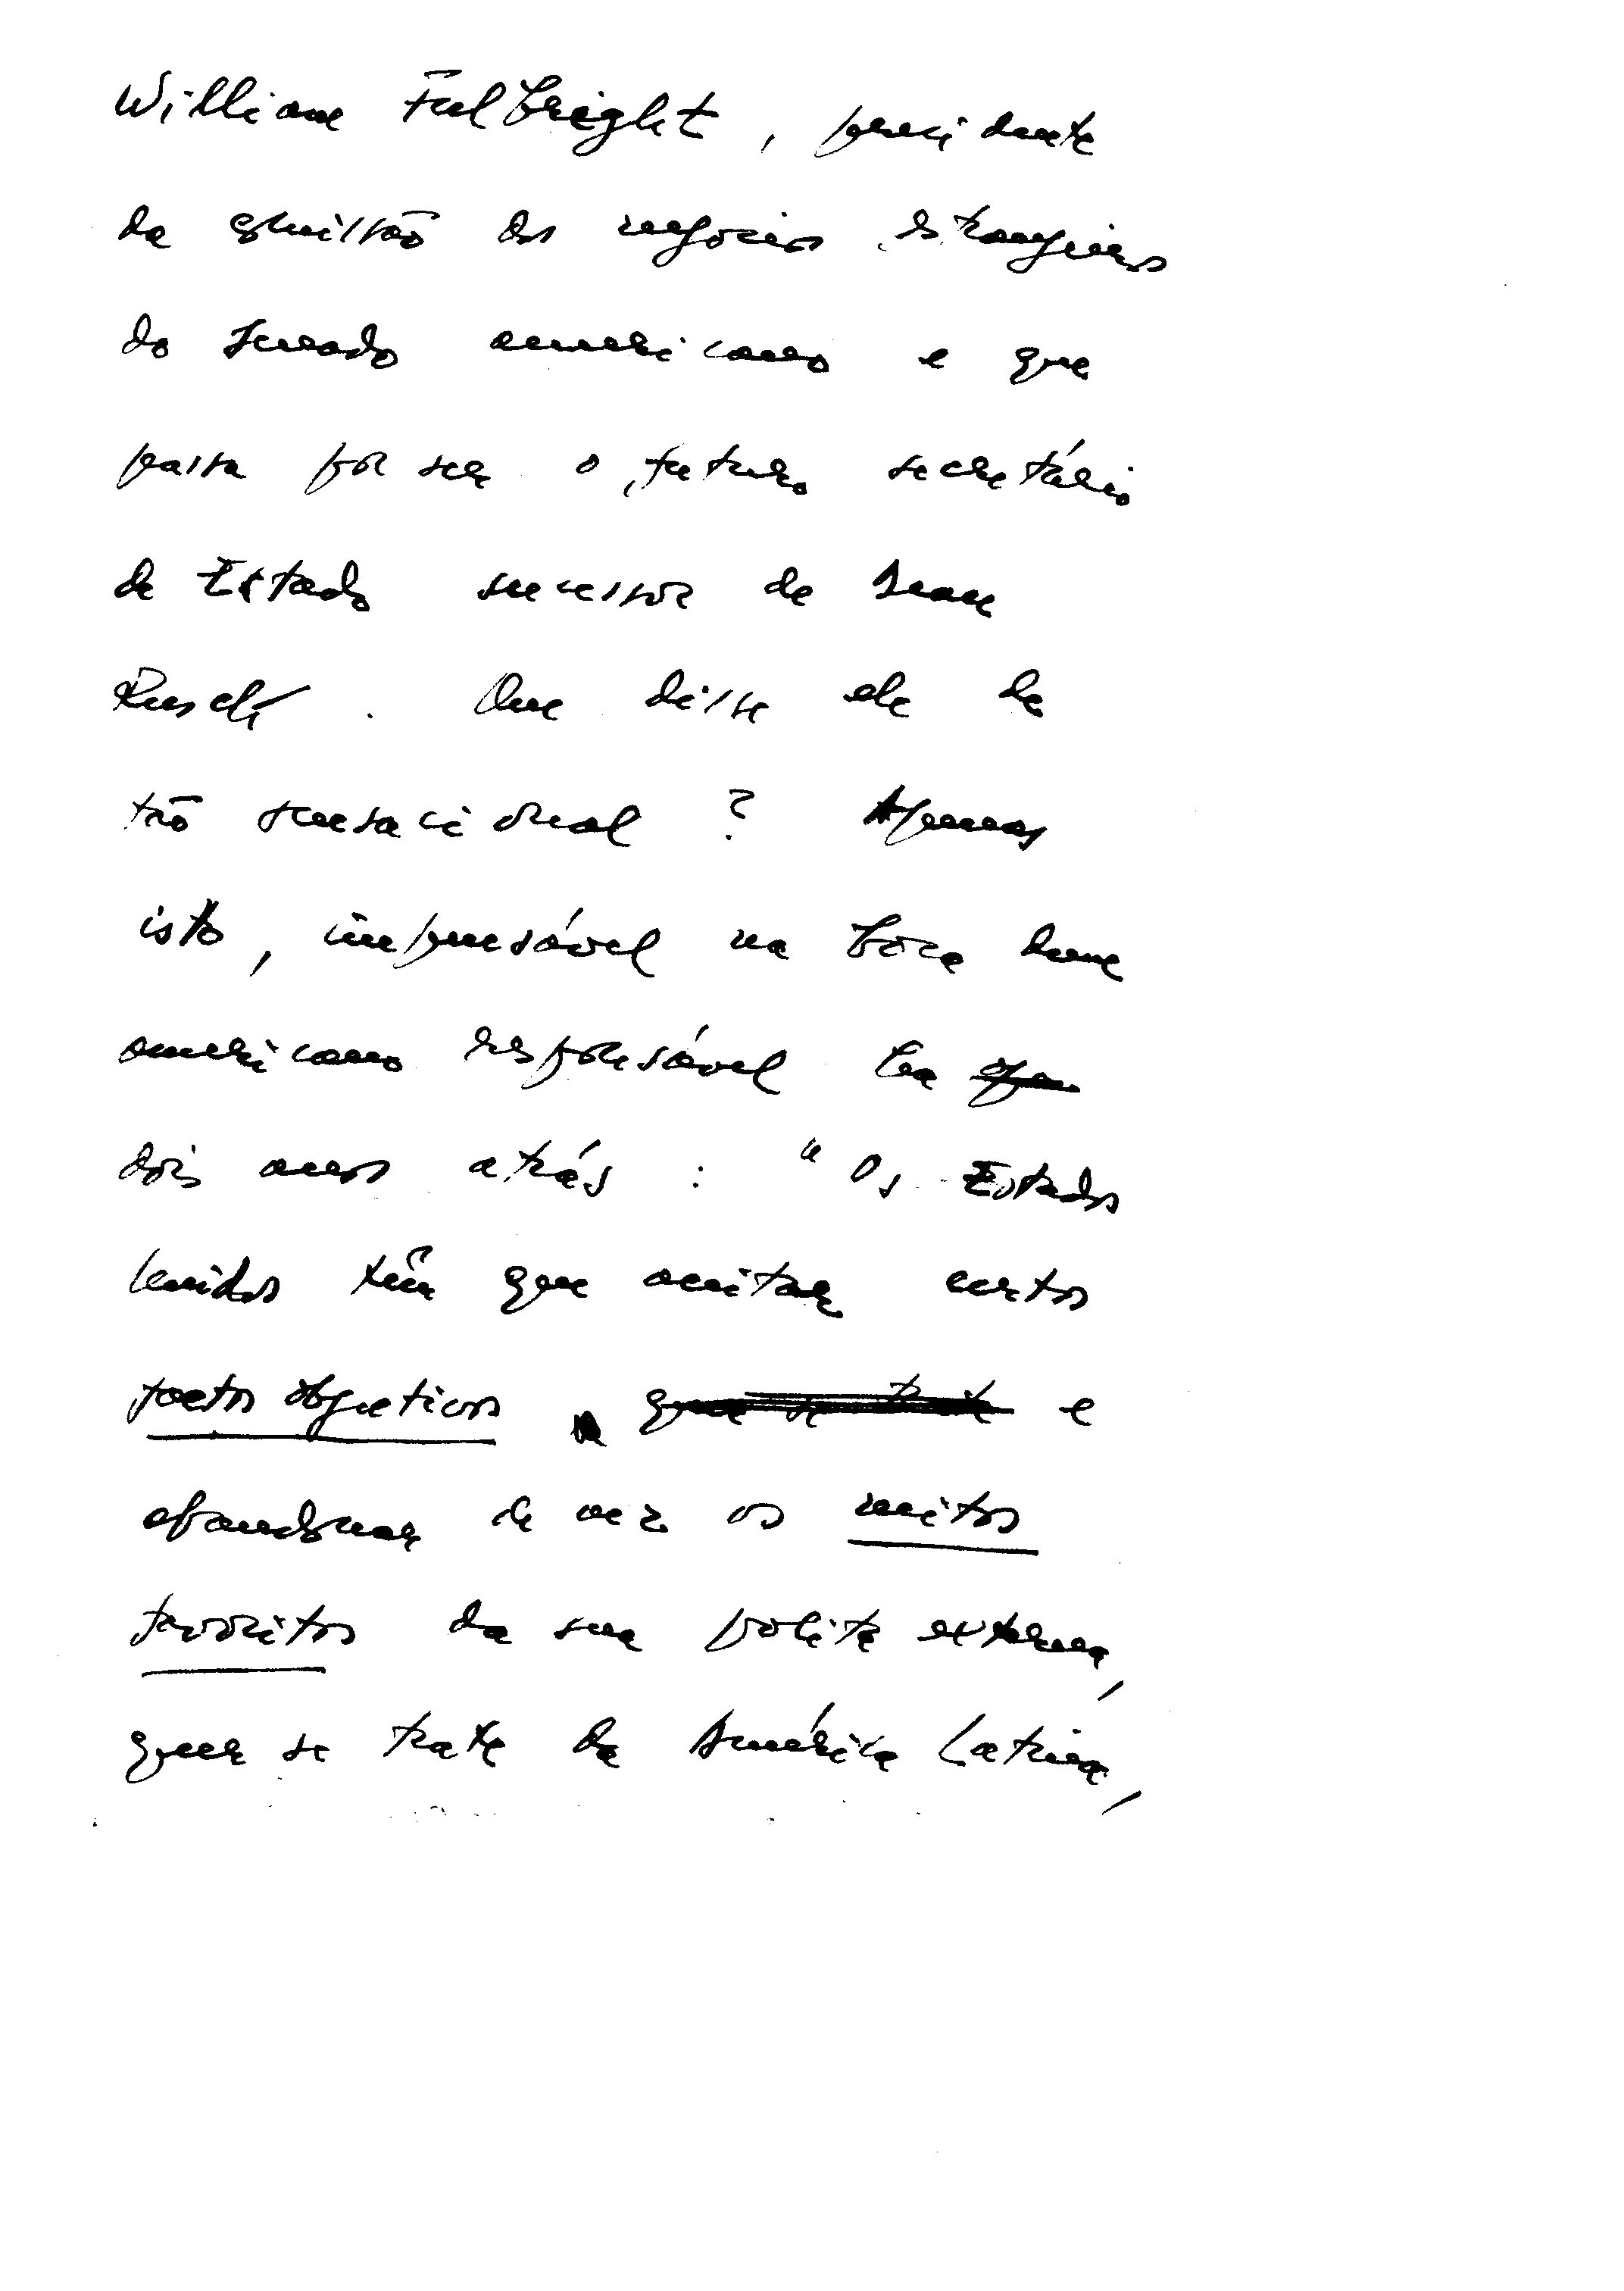 William Fulbright, presidente
da comissão dos negócios estrangeiros
do Senado americano e que
passa por ser o futuro secretário
de Estado sucessor de Dean
Rusck. Que disse ele de
tão sensacional? Apenas
isto, impensável na boca dum
americano responsável há
dois anos atrás: "Os Estados
Unidos têm que aceitar certos
factos objectivos e
abandonar de vez os mitos
favoritos da sua polita externa,
quer se trate da América Latina,